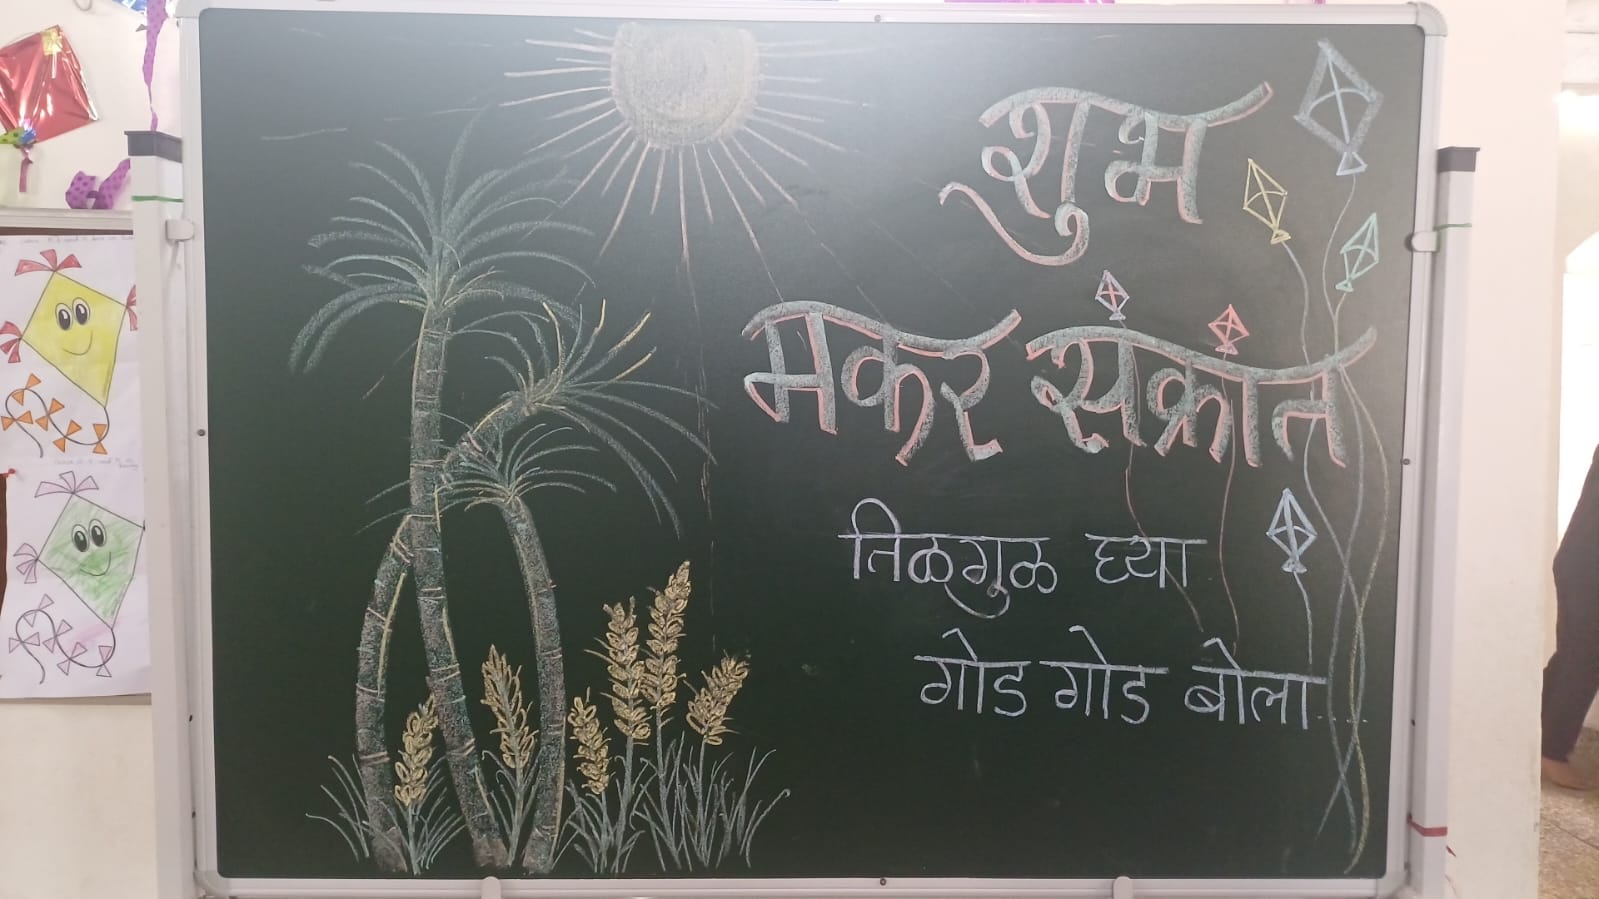 शुभ
मकर संक्रांत
तिळगुळ घ्या
गोड गोड बोला....